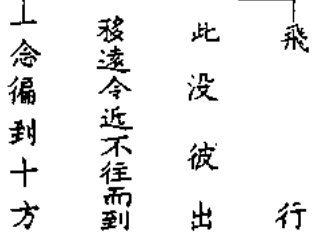 飛行
此没彼出
移遠令近不往而到
一念偏到十方